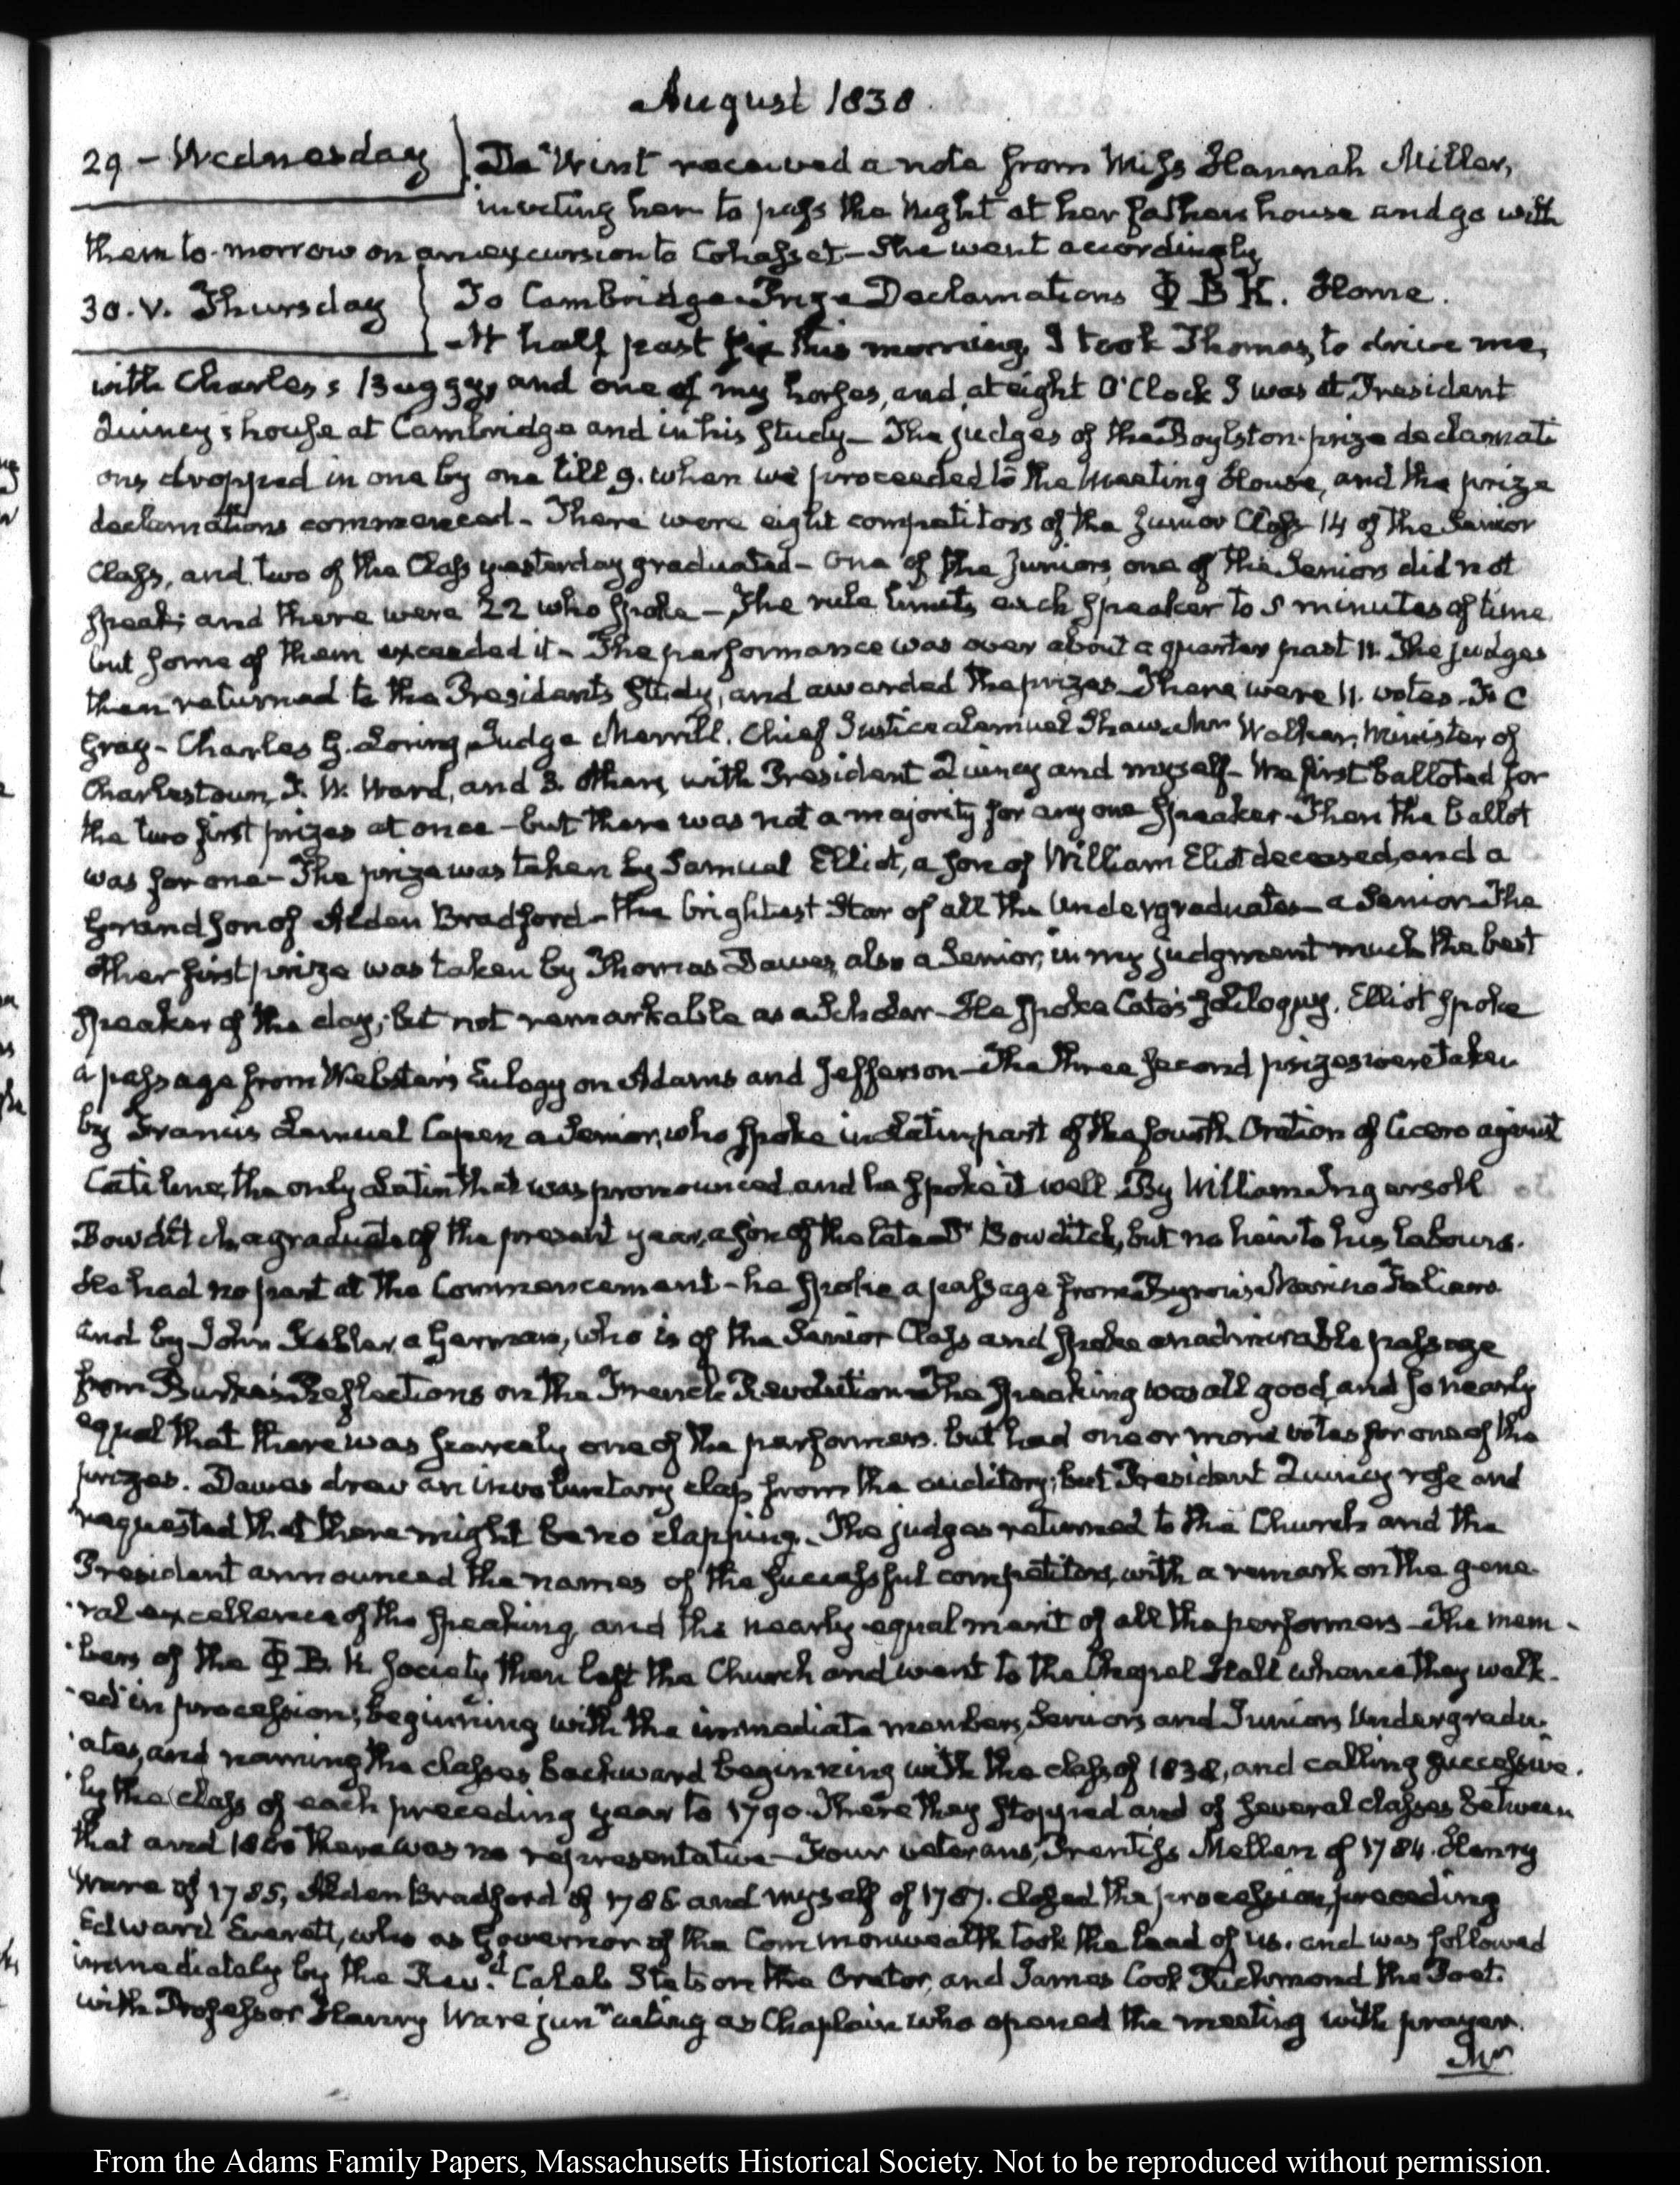 August 1838.
29 – Wednesday } De Wint received a note from Miss Hannah Miller,
inviting her to pass the Night at her fathers house and go with
them to-morrow on an excursion to Cohasset – She went accordingly
30. V. Thursday } To Cambridge. Prize Declamations Φ B K. Home.
At half past six this morning, I took Thomas, to drive me,
with Charles's Buggy, and one of my horses, and at eight O'Clock I was at President
Quincy's house at Cambridge and in his study – The judges of the Boylston prize declamati
ons dropped in one by one till 9. when we proceeded to the Meeting House, and the prize
declamations commenced – There were eight competitors of the Junior Class 14 of the Senior
Class, and two of the Class yesterday graduated – One of the Juniors, one of the Seniors did not
speak; and there were 22 who spoke – The rule limits each speaker to 5 minutes of time
but some of them exceeded it – The performance was over about a quarter past 11. The judges
then returned to the Presidents study, and awarded the prizes. There were 11. votes.
Gray – Charles G. Loring, Judge Merrill. Chief Justice Lemuel Shaw. Mr Walker, Minister of
Charlestown, Ward, and 3. others, with President Quincy and myself – We first balloted for
the two first prizes at once – but there was not a majority for any one speaker – Then the ballot
was for one – The prize was taken by Samuel Elliot, a son of William Eliot deceased, and a
Grandson of Alden Bradford – the brightest Star of all the Undergraduates – a Senior – The
other first prize was taken by Thomas Dawes, also a Senior, in my judgment much the best
speaker of the day; but not remarkable as a Scholar – He spoke Cato's Soliloquy. Elliot spoke
a passage from Webster's Eulogy on Adams and Jefferson – The three second prizes were taken
by Francis Lemuel Capen a Senior, who spoke in Latin, part of the fourth Oration of Cicero against
Catiline, the only Latin that was pronounced and he spoke it well. By William Ingersoll
Bowditch, a graduate of the present year, a son of the late Dr Bowditch, but no heir to his labours.
He had no part at the Commencement – he spoke a passage from Byron's Marino Faliero
and by John Kebler, a German, who is of the Senior Class and spoke an admirable passage
from Burke's Reflections on the French Revolution – The speaking was all good, and so nearly
equal that there was scarcely one of the performers. but had one or more votes for one of the
prizes. Dawes drew an involuntary clap from the auditory; but President Quincy rose and
requested that there might be no clapping. The judges returned to the Church and the
President announced the names of the successful competitors, with a remark on the gene-
ral excellence of the speaking, and the nearly equal merit of all the performers – The mem-
bers of the Φ B. K. Society then left the Church and went to the Chapel Hall whence they walk-
ed in procession; beginning with the immediate members, Seniors and Juniors Undergradu-
ates, and naming the classes backward beginning with the class of 1838, and calling successive-
ly the class of each preceding year to 1790. There they stopped and of several classes between
that and 1800 there was no representative – Four veterans, Prentiss Mellen of 1784. Henry
Ware of 1785, Alden Bradford of 1786 and myself of 1787. closed the procession, preceding
Edward Everett, who as Governor of the Commonwealth took the lead of us. and was followed
immediately by the Revd. Caleb Stetson the Orator, and James Cook Richmond the Poet.
with Professor Henry Ware junr acting as Chaplain who opened the meeting with prayer.
Mr
From the Adams Family Papers, Massachusetts Historical Society. Not to be reproduced without permission.